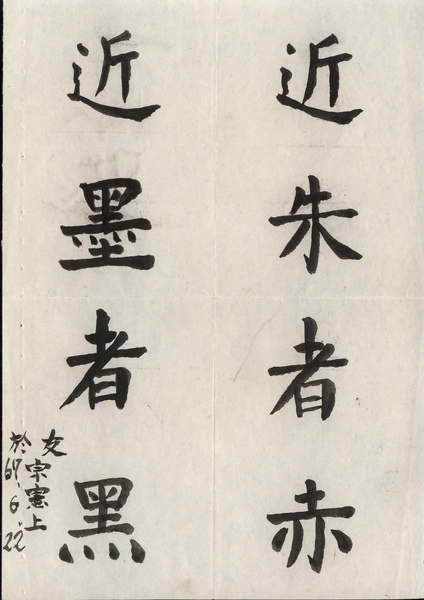 近朱者赤
近墨者黑
友宗憲上
於69.6.22